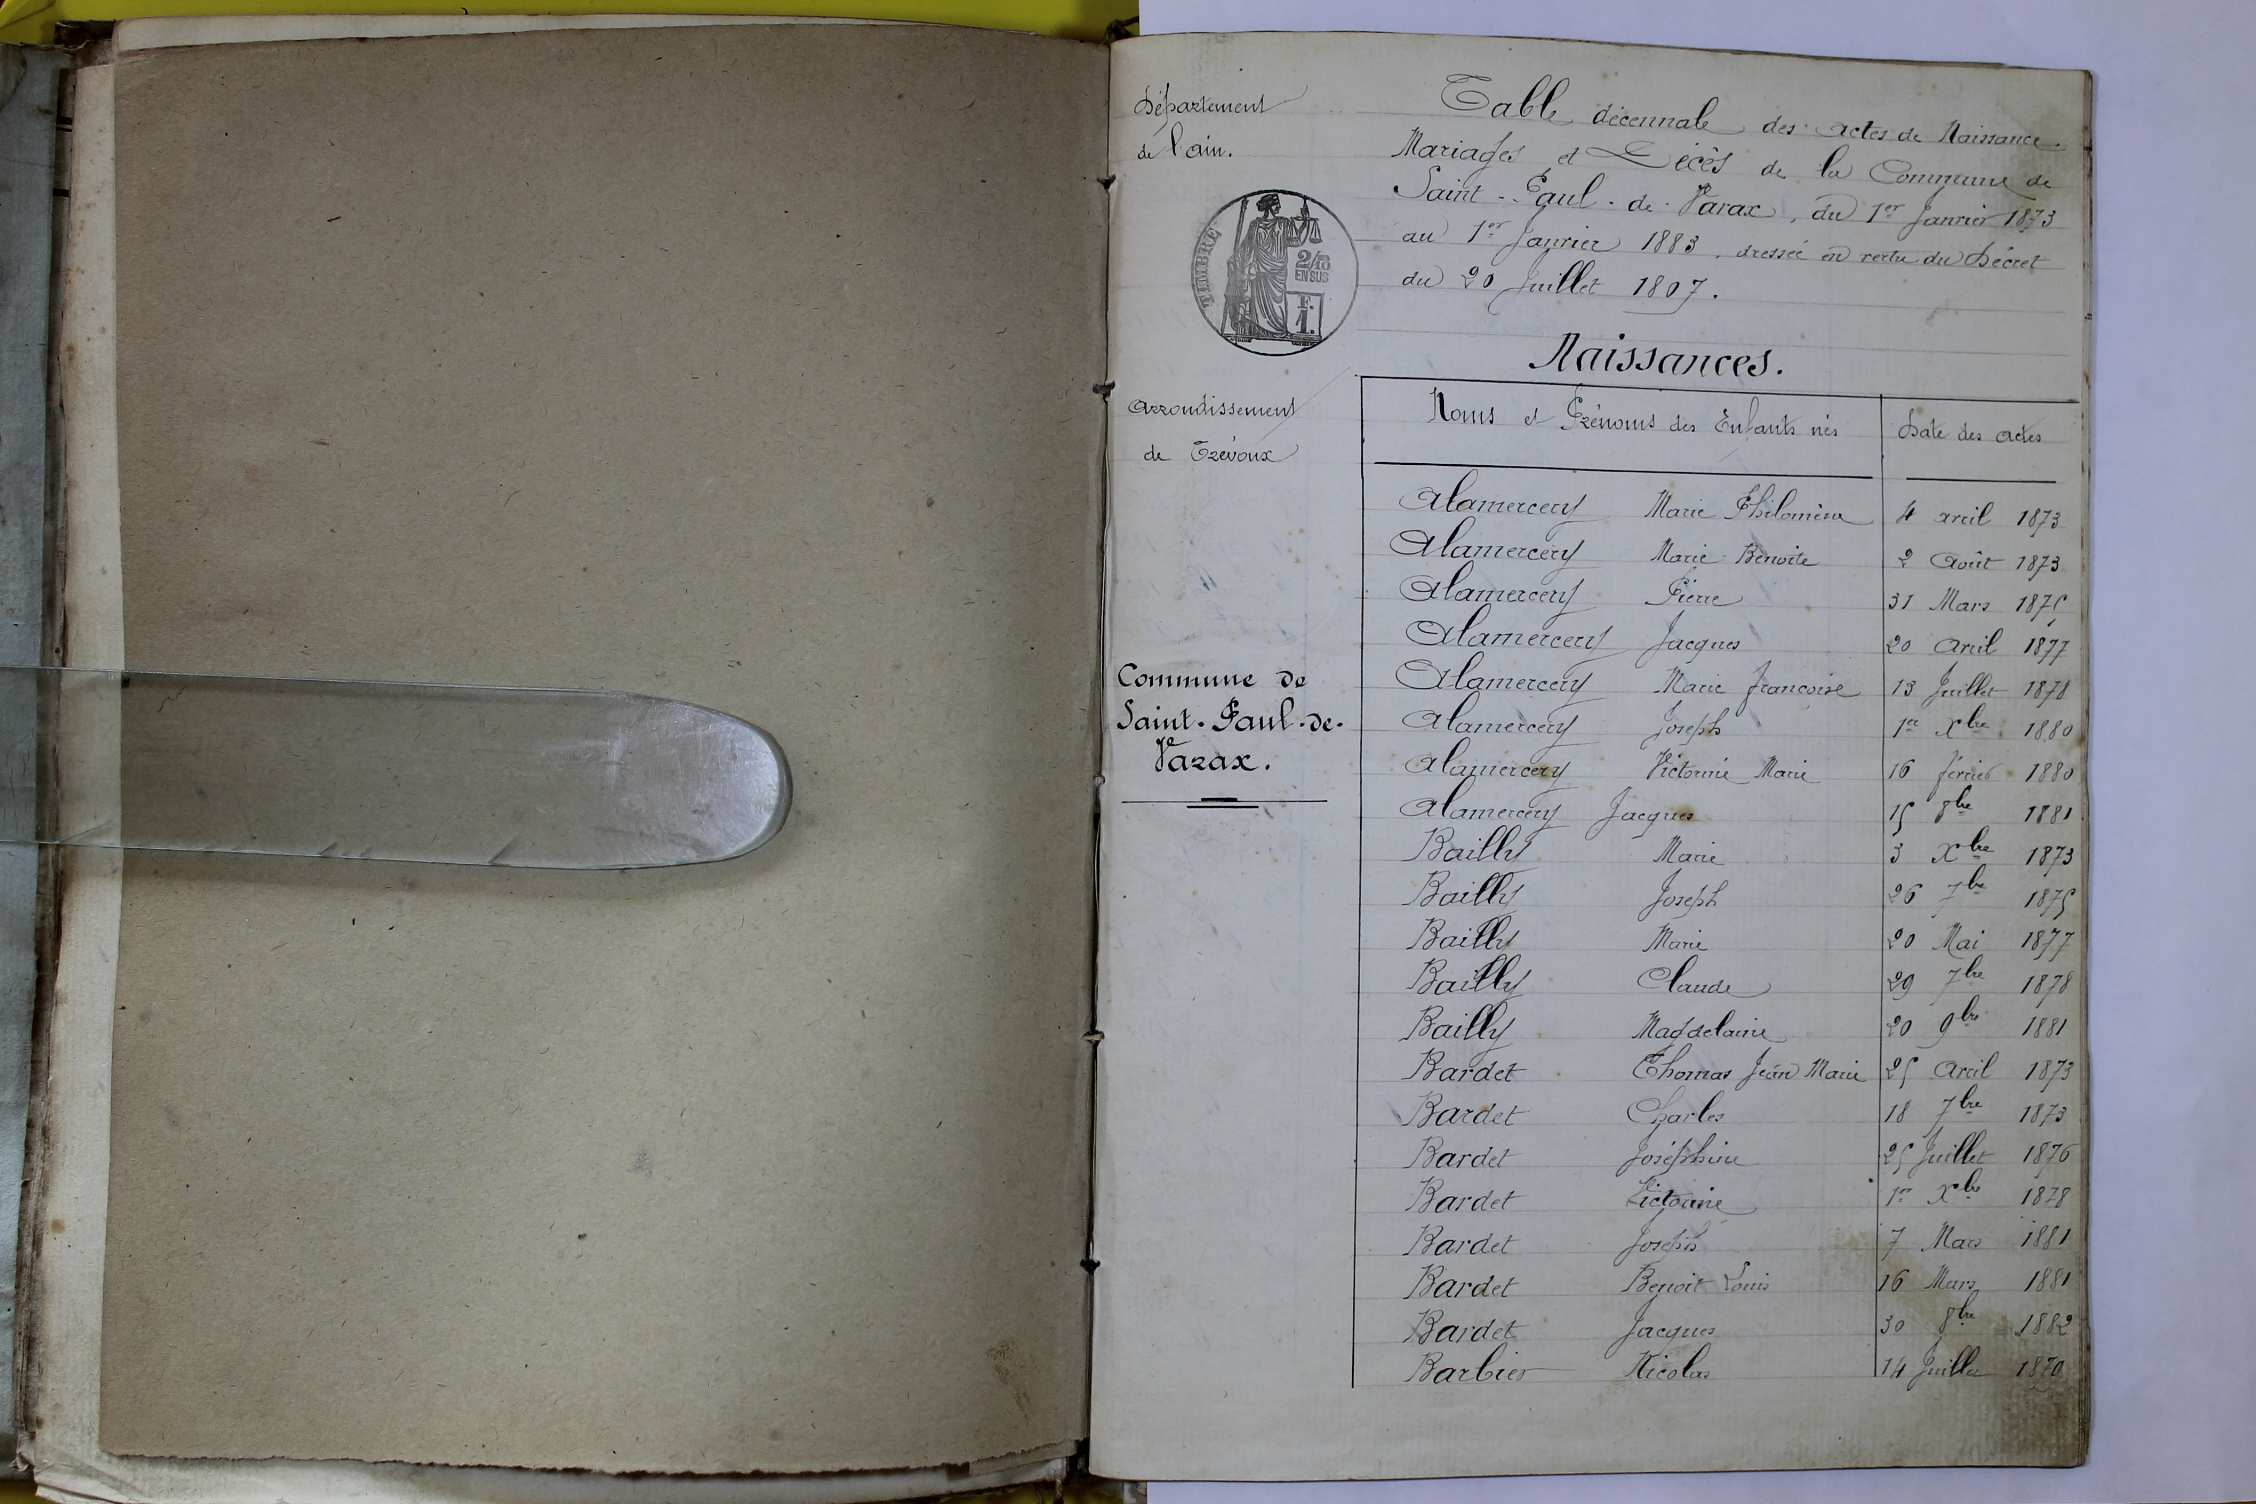 Département
de l'ain.
TIMBRE
2/10
EN SUS
F.
1.
arrondissement
de Trévoux
Commune de
Saint-Paul-de-
Varax.
Table décennale des actes de Naissance.
Mariages et Décès de la Commune de
Saint-Paul-de-Varax, du 1er Janvier 1873
au 1er Janvier 1883, dressée en vertu du Décret
du 20 Juillet 1807.
Naissances.
Noms et Prénoms des Enfants nés Date des actes
Alamercery Marie Philomène 4 avril 1873
Alamercery Marie Benoite 2 Août 1873
Alamercery Pierre 31 Mars 1875
Alamercery Jacques 20 avril 1877
Alamercery Marie Françoise 13 Juillet 1878
Alamercery Joseph 1er Xbre 1880
Alamercery Victorine Marie 16 février 1880
Alamercery Jacques 15 8bre 1881
Bailly Marie 3 Xbre 1873
Bailly Joseph 26 7bre 1875
Bailly Marie 20 Mai 1877
Bailly Claude 29 7bre 1878
Bailly Magdelaine 20 9bre 1881
Bardet Thomas Jean Marie 25 avril 1873
Bardet Charles 18 7bre 1873
Bardet Joséphine 25 Juillet 1876
Bardet Victorine 1er Xbre 1878
Bardet Joseph 7 Mars 1881
Bardet Benoit Louis 16 Mars 1881
Bardet Jacques 30 8bre 1882
Barbier Nicolas 14 Juillet